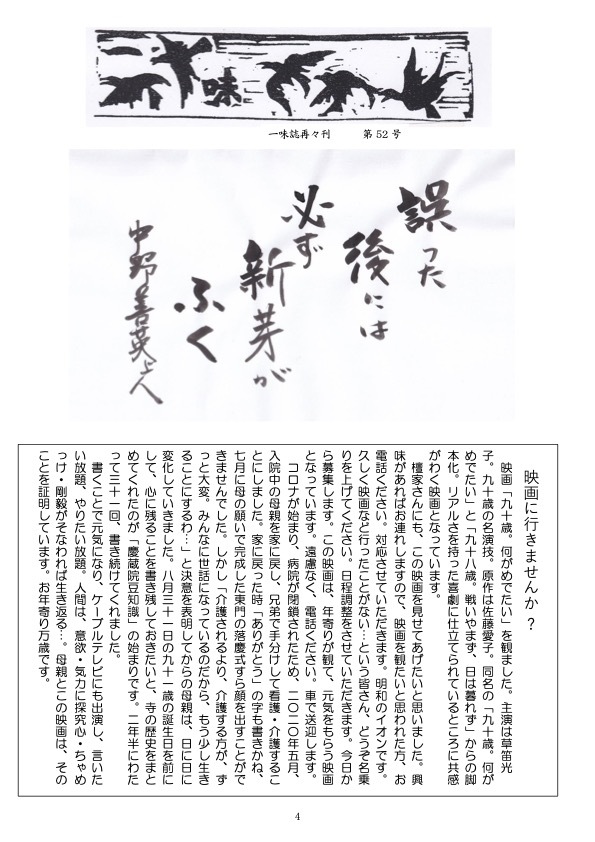 一味
一味誌再々刊　第52号
誤った
後には
必ず
新芽が
ふく
中野善英上人
映画に行きませんか？
映画「九十歳。何がめでたい」を観ました。主演は草笛光
子。九十歳の名演技。原作は佐藤愛子。同名の「九十歳。何が
めでたい」と「九十八歳。戦いやまず、日は暮れず」からの脚
本化。リアルさを持った喜劇に仕立てられているところに共感
がわく映画となっています。
檀家さんにも、この映画を見せてあげたいと思いました。興
味があればお連れしますので、映画を観たいと思われた方、お
電話ください。対応させていただきます。明和のイオンです。
久しく映画など行ったことがない…という皆さん、どうぞ名乗
りを上げてください。日程調整をさせていただきます。今日か
ら募集します。この映画は、年寄りが観て、元気をもらう映画
となっています。遠慮なく、電話ください。車で送迎します。
コロナが始まり、病院が閉鎖されたため、二〇二〇年五月、
入院中の母親を家に戻し、兄弟で手分けして看護・介護するこ
とにしました。家に戻った時「ありがとう」の字も書きかね、
七月に母の願いで完成した東門の落慶式すら顔を出すことがで
きませんでした。しかし「介護されるより、介護する方が、ず
っと大変。みんなに世話になっているのだから、もう少し生き
ることにするわ…」と決意を表明してからの母親は、日に日に
変化していきました。八月三十一日の九十一歳の誕生日を前に
して、心に残ることを書き残しておきたいと、寺の歴史をまと
めてくれたのが「慶蔵院豆知識」の始まりです。二年半にわた
って三十一回、書き続けてくれました。
書くことで元気になり、ケーブルテレビにも出演し、言いた
い放題、やりたい放題。人間は、意欲・気力に探究心・ちゃめ
っけ・剛毅がそなわれば生き返る…。母親とこの映画は、その
ことを証明しています。お年寄り万歳です。
4